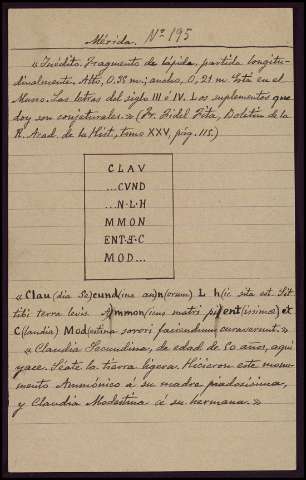 Mérida. Nº 195
« Inédito. Fragmento de lápida, partida longitu-
dinalmente. Alto, 0,38 m.; ancho, 0,21 m. Está en el
Museo. Las letras del siglo III ó IV. Los suplementos que
doy son conjeturales. » (Fr. Fidel Fita, Boletín de la
R. Acad. de la Hist., tomo XXV, pág. 115.)
CLAV
...CVND
...N·L·H
MMON
ENT·E·C
MOD...
« Clau(dia Se)cund(ina an)n(orum) L h(ic sita est. Sit
tibi terra levis. A)mmon(icus matri pi)ent(issimae) et
C(laudia) Mod(estina sorori faciendum) curaverunt. »
« Claudia Secundina, de edad de 50 años, aquí
yace. Séate la tierra ligera. Hicieron este monu-
mento Ammónico á su madre piadosísima,
y Claudia Modestina á su hermana. »